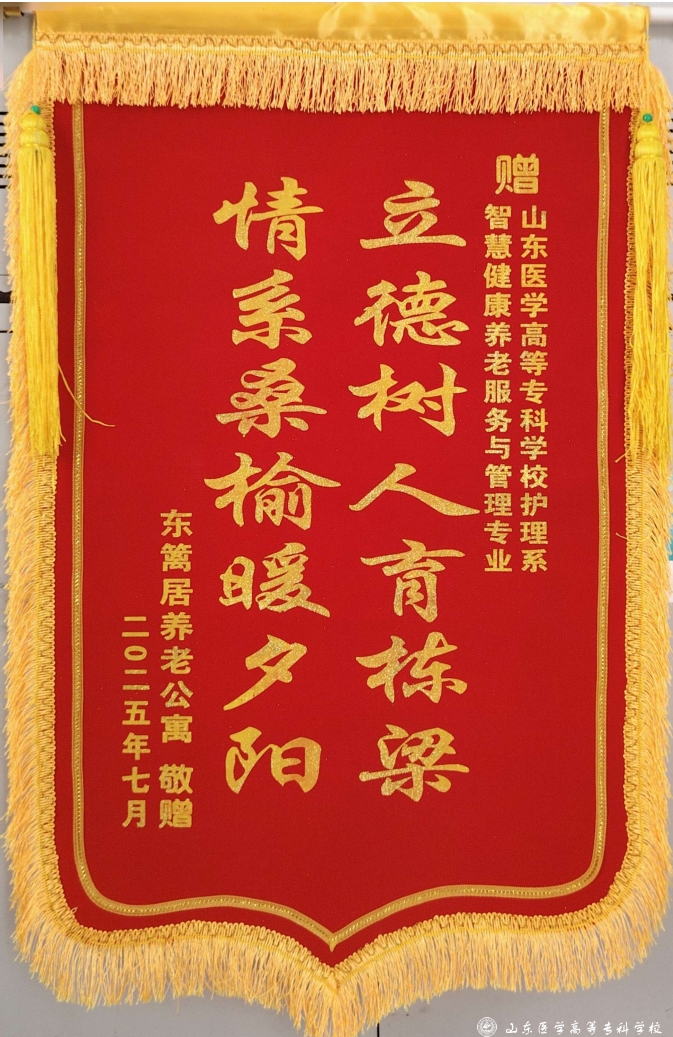 赠
山东医学高等专科学校护理系
智慧健康养老服务与管理专业
立德树人育栋梁
情系桑榆暖夕阳
东篱居养老公寓 敬赠
二〇二五年七月
山东医学高等专科学校